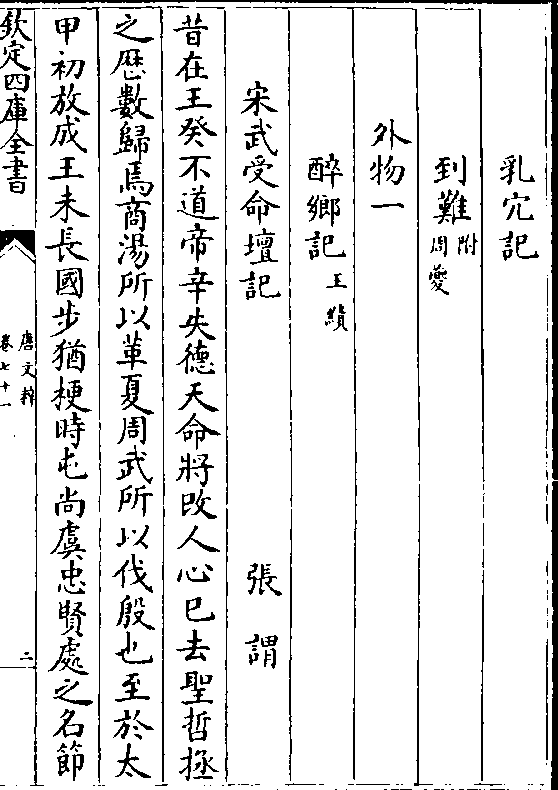 乳穴記
到難附周夔
外物一
醉鄉記王績
宋武受命壇記 張謂
昔在王癸不道帝辛失德天命將改人心已去聖哲拯
之歴數歸焉商湯所以革夏周武所以伐殷也至於太
甲初放成王未長國步猶梗時屯尚虞忠賢處之名節
欽定四庫全書
唐文粹
卷七十一
二